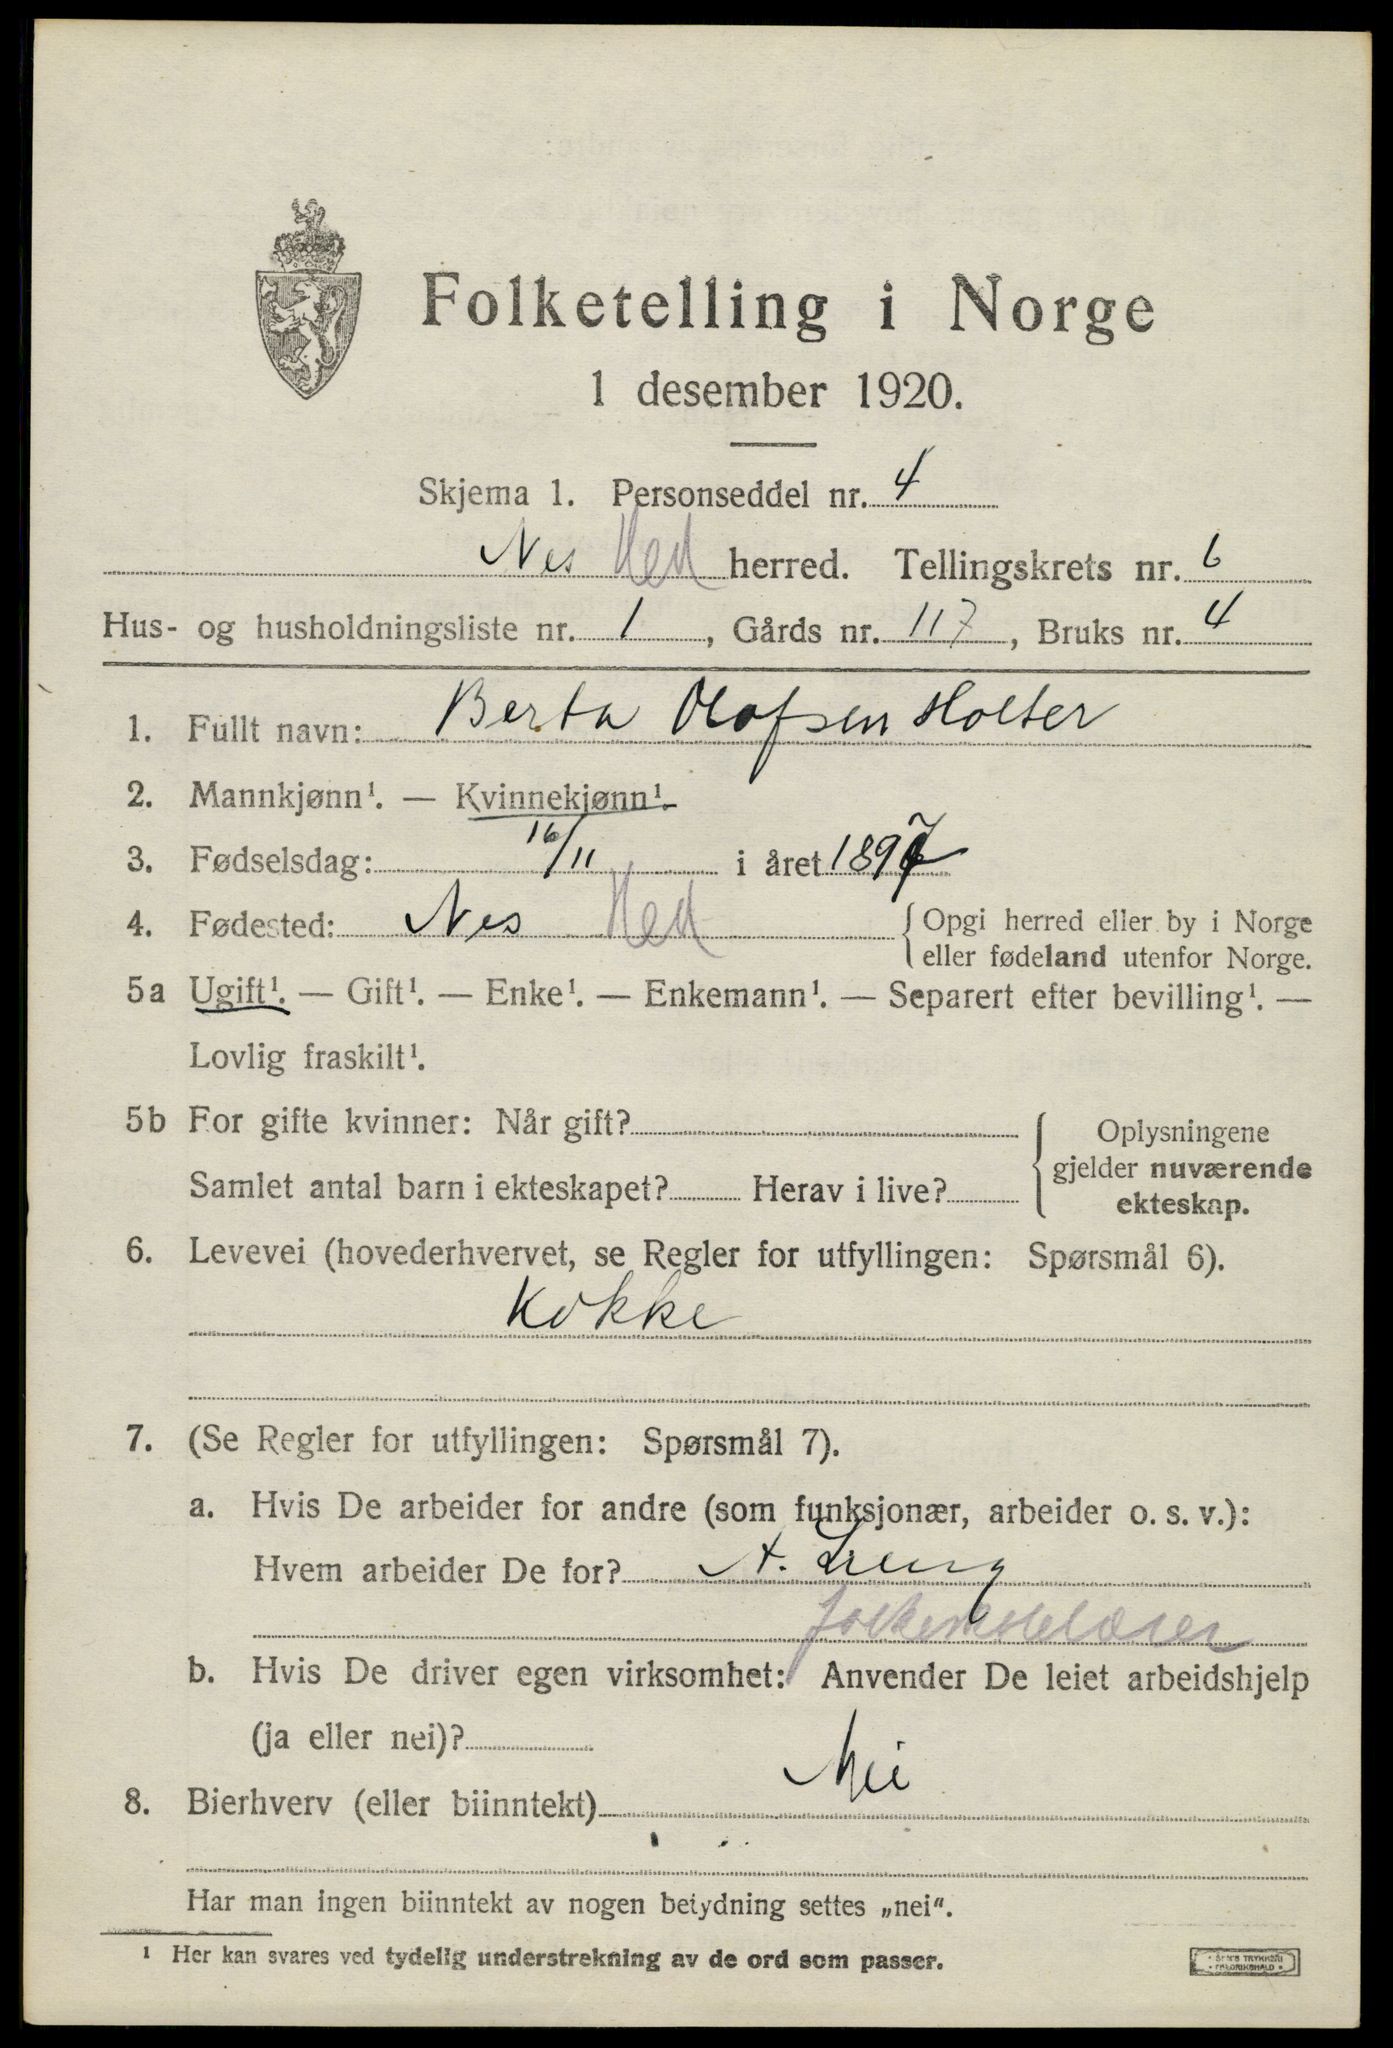 Folketelling i Norge
1 desember 1920.
Skjema 1. Personseddel nr. 4
Nes Hed herred. Tellingskrets nr. 6
Hus- og husholdningsliste nr. 1, Gårds nr. 117, Bruks nr. 4
1. Fullt navn: Berta Olofsen Holter
2. Mannkjønn¹. — Kvinnekjønn¹.
3. Fødselsdag: 16/11 i året 1897
4. Fødested: Nes Hed { Opgi herred eller by i Norge
eller fødeland utenfor Norge.
5a Ugift¹. — Gift¹. — Enke¹. — Enkemann¹. — Separert efter bevilling¹. —
Lovlig fraskilt¹.
5b For gifte kvinner: Når gift? { Oplysningene
gjelder nuværende
Samlet antal barn i ekteskapet? Herav i live?
ekteskap.
6. Levevei (hovederhvervet, se Regler for utfyllingen: Spørsmål 6).
Kokke
7. (Se Regler for utfyllingen: Spørsmål 7).
a. Hvis De arbeider for andre (som funksjonær, arbeider o. s. v.):
Hvem arbeider De for? A.
folkeskolelærer
b. Hvis De driver egen virksomhet: Anvender De leiet arbeidshjelp
(ja eller nei)?
8. Bierhverv (eller biinntekt) Nei
Har man ingen biinntekt av nogen betydning settes „nei“.
¹ Her kan svares ved tydelig understrekning av de ord som passer.